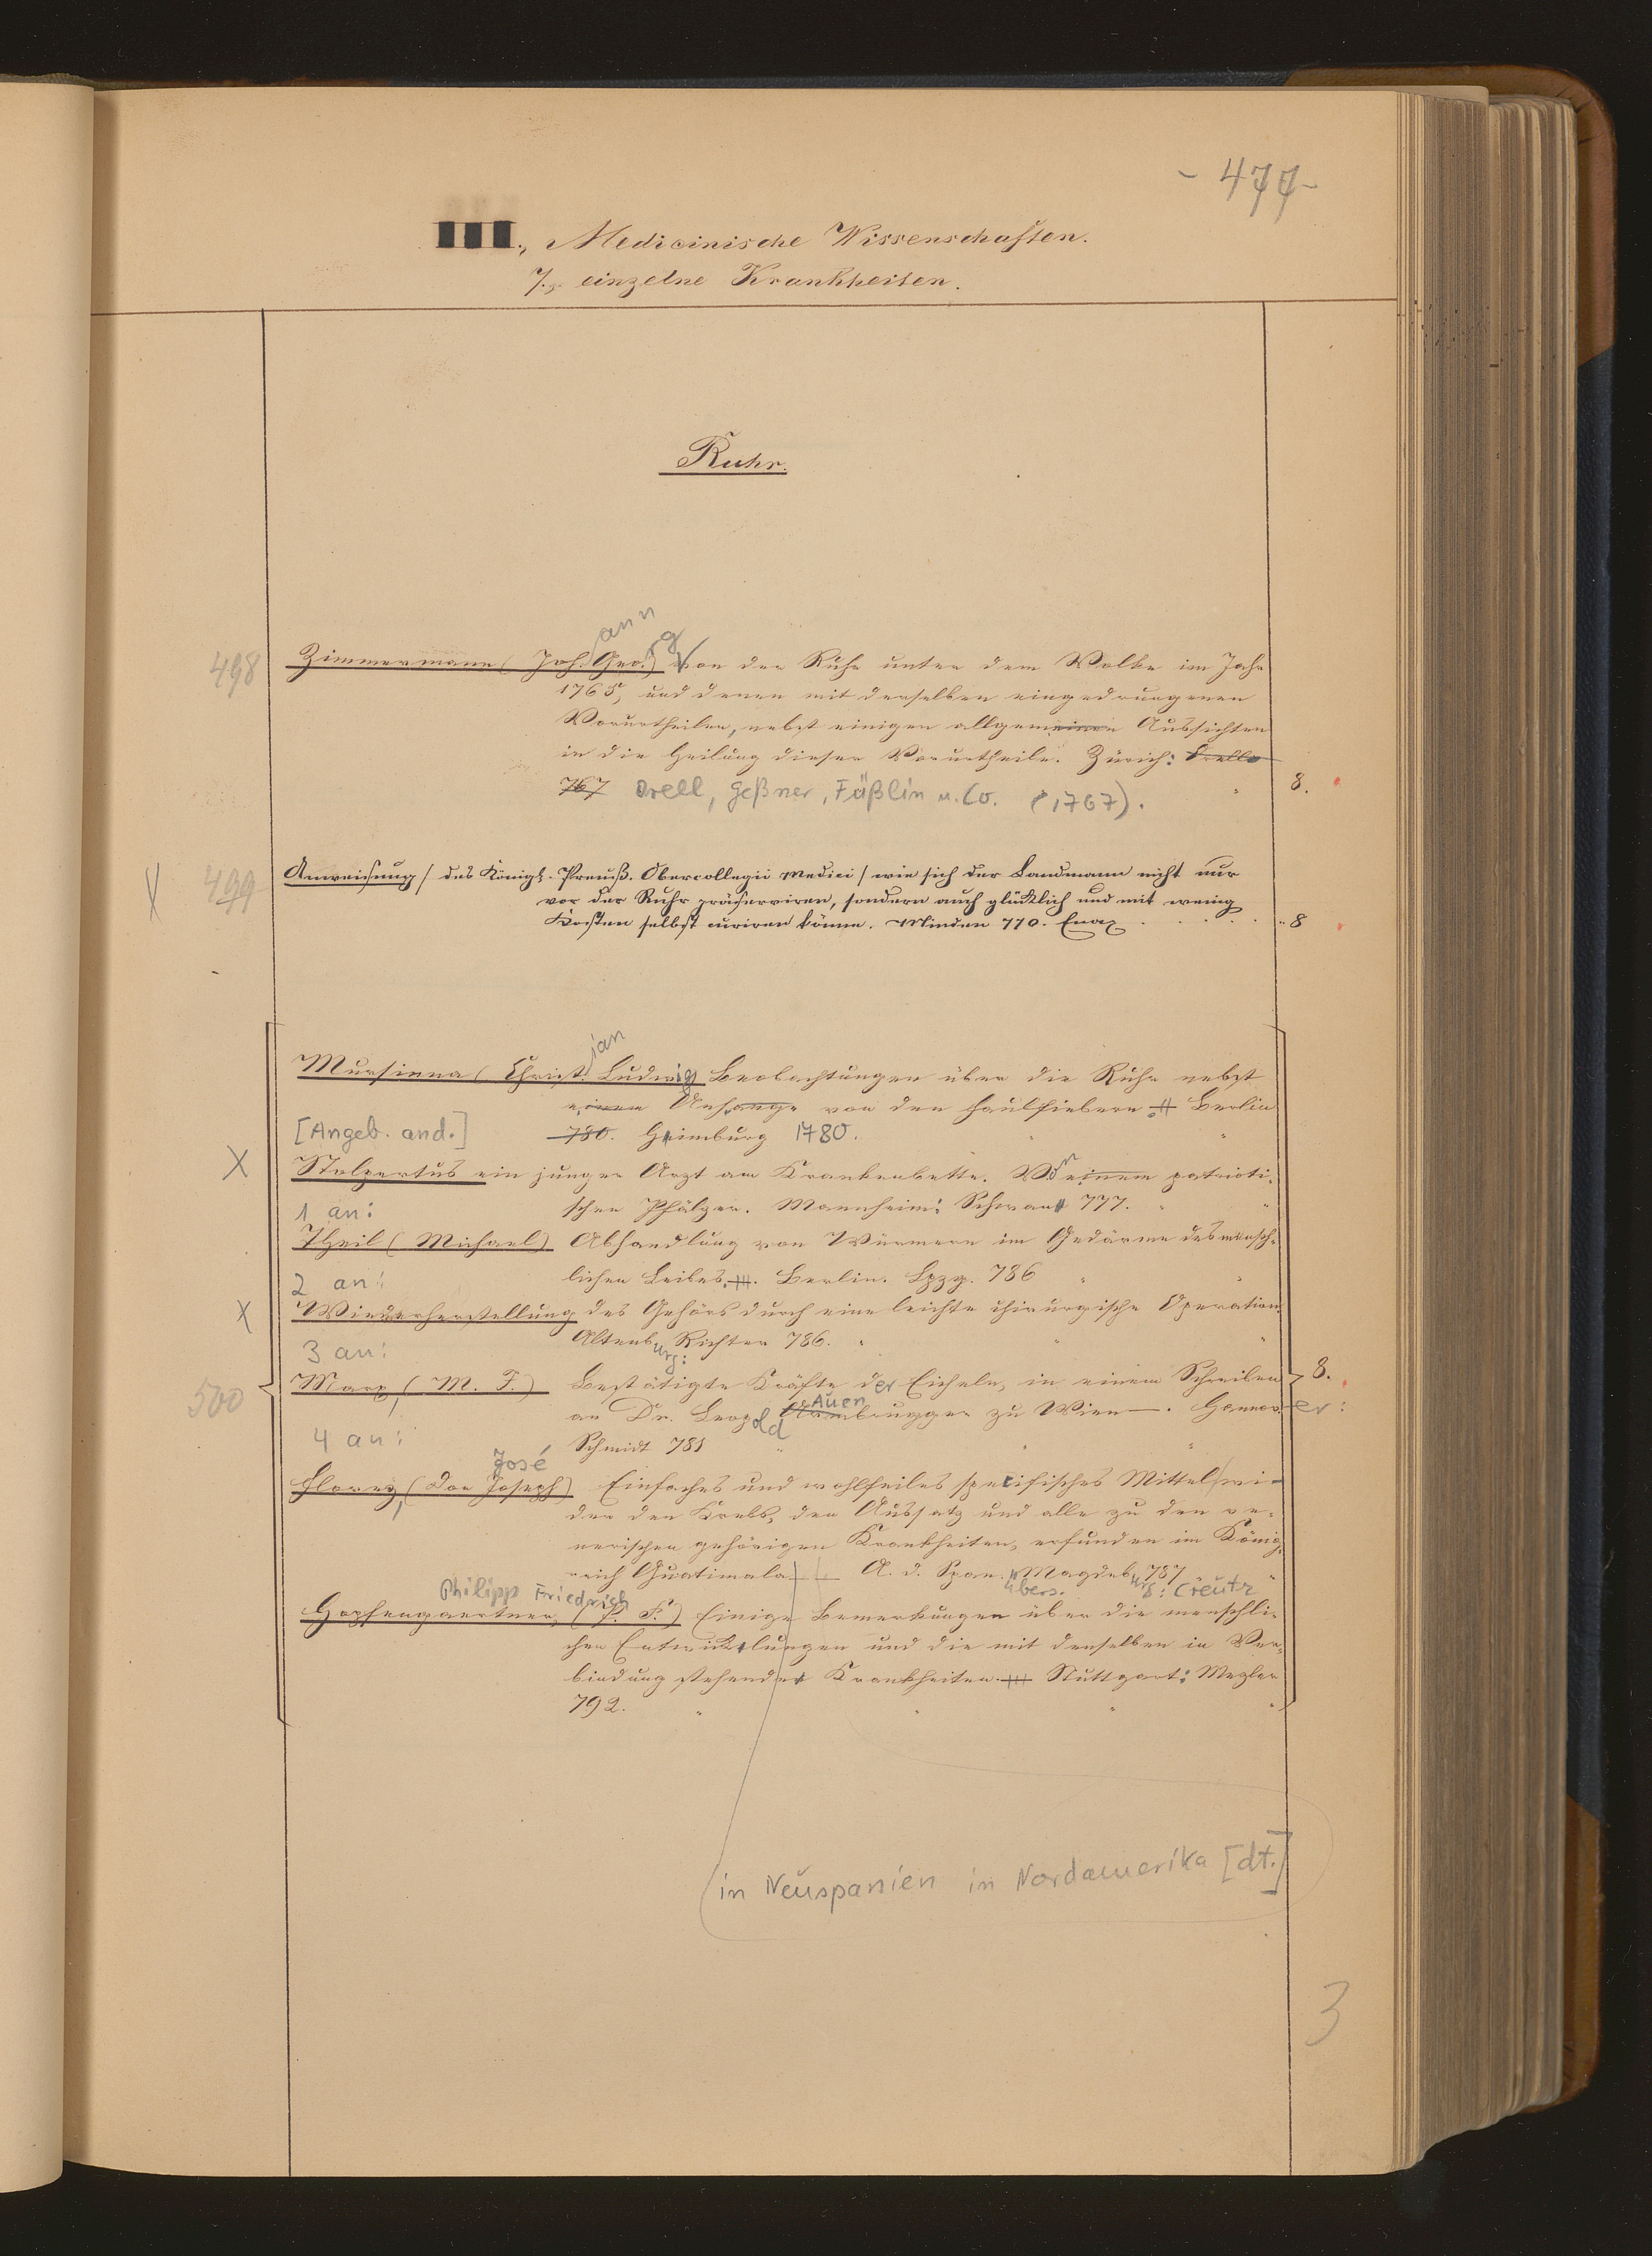 - 477 -
III., Medicinische Wissenschaften.
7., einzelne Krankheiten.
Ruhr.
ann g
498 Zimmermann (Joh. Geo.) Von der Ruhr unter dem Volke im Jahr
1765, und denen mit derselben eingedrungenen
Vorurtheilen, nebst einigen allgemeinen Aussichten
in die Heilung dieser Vorurtheile. Zürich: Orell
767 Orell, Geßner, Füßlin u. Co. (1767). " 8.
X 499 Anweisung / des Königl. Preuß. Obercollegii Medici / wie sich der Landmann nicht nur
vor der Ruhr präserviren, sondern auch glücklich und mit wenig
Kosten selbst curiren könne. Minden 770. Enax . . . . . 8
ian
Mursinna (Christ. Ludwig) Beobachtungen über die Ruhr nebst
einem Anhange von den Faulfiebern Berlin
[Angeb. and.] 780. Himburg 1780. " "
X Stolpertus ein junger Arzt am Krankenbette. Von einem patrioti-
1 an: schen Pfälzer. Mannheim: Schwan 777. " "
Theil (Michael) Abhandlung von Würmern im Gedärme des mensch-
2 an: lichen Leibes. Berlin. Lpzg. 786 " "
X Wiederherstellung des Gehörs durch eine leichte chirurgische Operation.
3 an: Altenburg: Richter 786. " " "
500 Marx, (M. J.) Bestätigte Kräfte der Eicheln, in einem Schreiben 8.
an Dr. Leopold Auenbrugger zu Wien. Hannover:
4 an: Schmidt 781 " " "
José
Florez, (Don Joseph) Einfaches und wohlfeiles specifisches Mittel wi-
der den Krebs, den Aussatz und alle zu den ve-
nerischen gehörigen Krankheiten, erfunden im König-
reich Guatimala A. d. Span. übers. Magdeburg: Creutz 787 "
Philipp Friedrich
Hopfengaertner, (P. F.) Einige Bemerkungen über die menschli-
chen Entwicklungen und die mit denselben in Ver-
bindung stehenden Krankheiten. Stuttgart: Mezler
792. " " " "
in Neuspanien in Nordamerika [dt.]
3